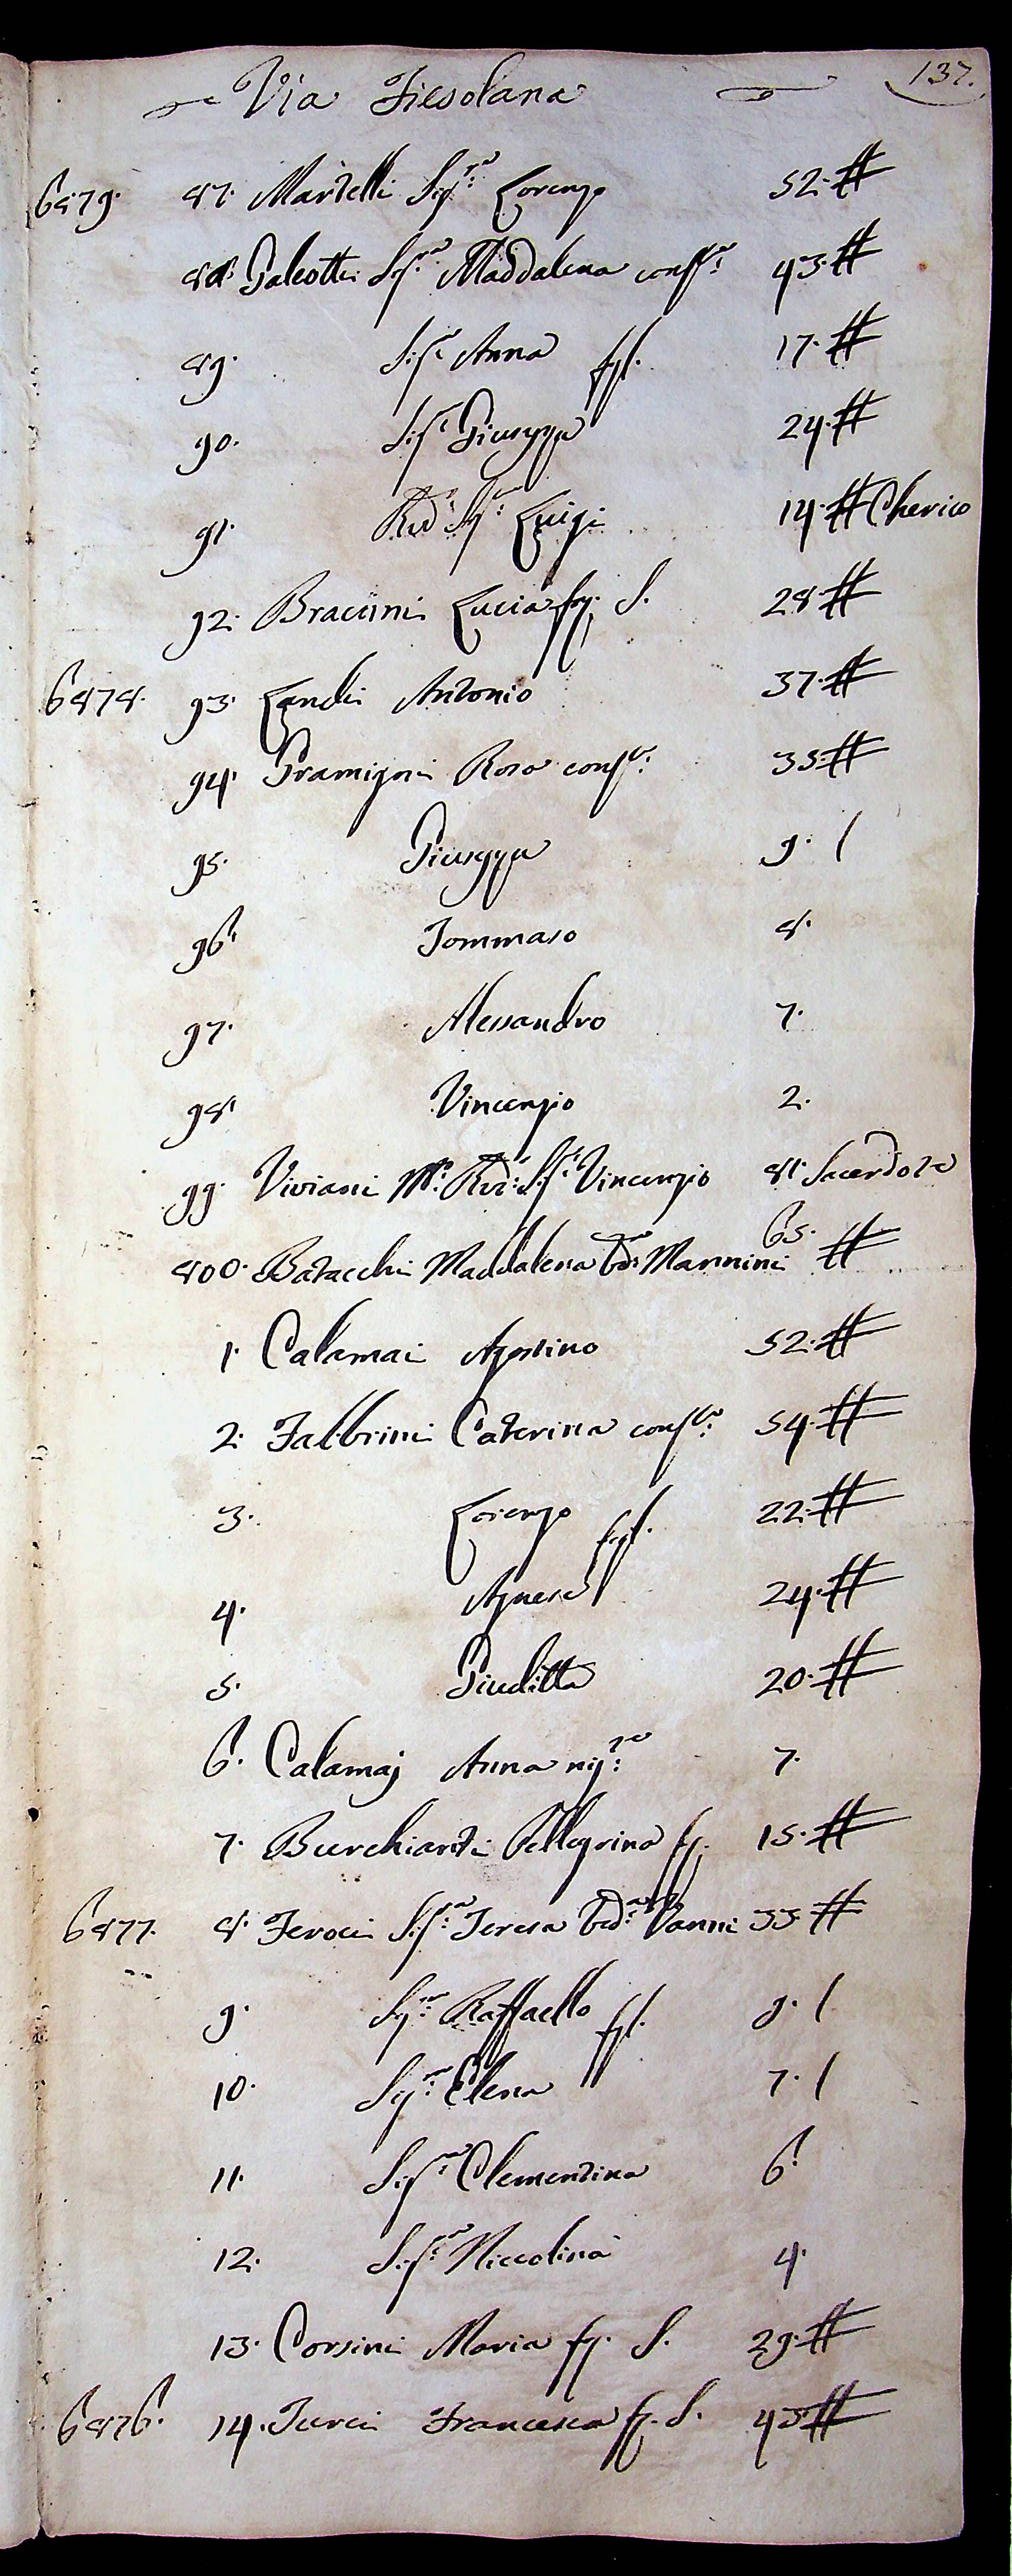 Via Fiesolana 137.
6879. 87. Martelli Sig.re Lorenzo 52. #
88. Galeotti Sig.ra Maddalena cons.te 43. #
89. Sig.ra Anna figl. 17. #
90. Sig.ra Giuseppa 24. #
91. Rev.do Sig.re Luigi 14. # Cherico
92. Braccini Lucia S. 28. #
6878. 93. Landi Antonio 37. #
94. Gramigni Rosa cons.te 35. #
95. Giuseppa 9. /
96. Tommaso 8.
97. Alessandro 7.
98. Vincenzio 2.
99. Viviani M.o Rev.do Sig.re Vincenzio 81. Sacerdote
800. Batacchi Maddalena Ved.a Mannini 65. #
1. Calamai Agostino 52. #
2. Fabbrini Caterina cons.te 54. #
3. Lorenzo figl. 22. #
4. Agnesa 24. #
5. Giuditta 20. #
6. Calamaj Anna nip.te 7.
7. Burchianti Pellegrino 15. #
6877. 8. Feroci Sig.ra Teresa Ved.a Vanni 33. #
9. Sig.re Raffaello figl. 9. /
10. Sig.ra Elena 7. /
11. Sig.ra Clementina 6.
12. Sig.ra Niccolina 4.
13. Corsini Maria S. 29. #
6876. 14. Turci Francesca S. 45 #